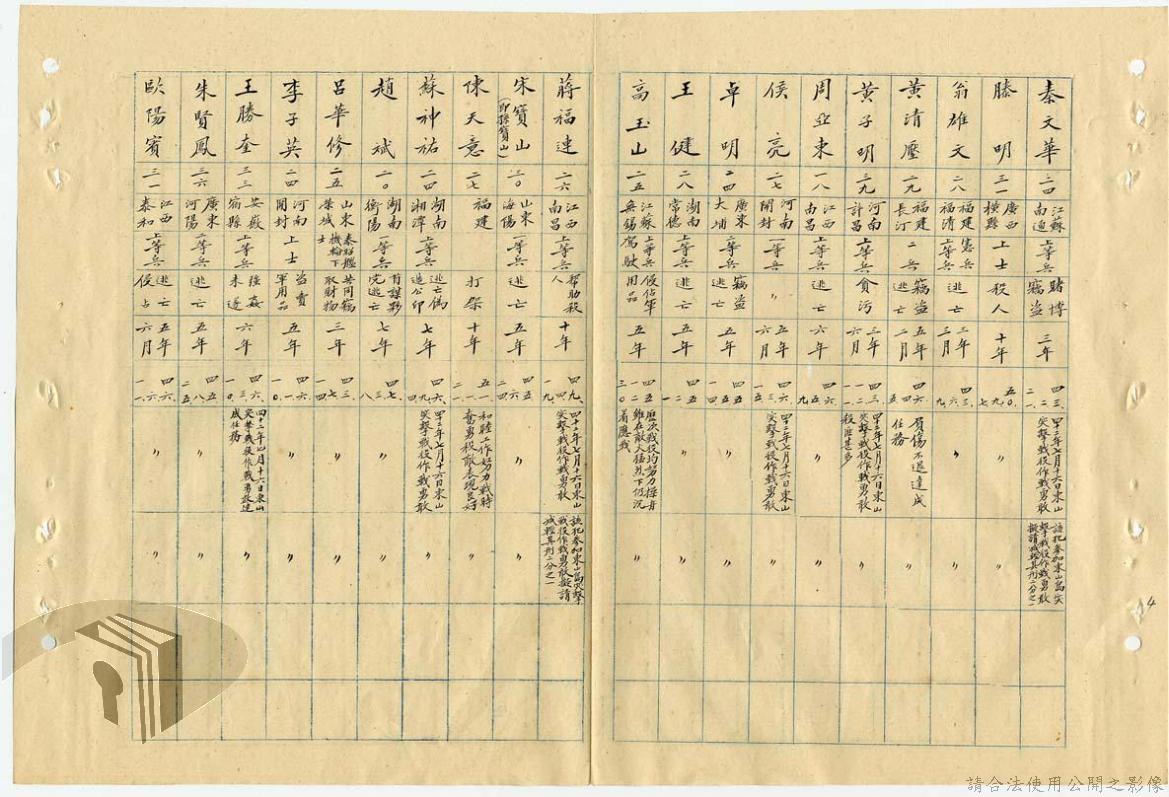 秦文華 二四 江蘇南通 上等兵 賭博竊盜 三年 四三.二.二. 四十二年七月十六日東山突擊戰役作戰勇敢 該犯參加東山島突擊戰役作戰勇敢擬請減輕其刑二分之一
滕明 三一 廣西橫縣 上士 殺人 十年 五〇. 七 〃 〃
翁雄文 二八 福建福清 憲兵上等兵 逃亡 三年三年 四三. 九. 〃 〃
黃清 二九 福建長汀 二兵 竊盜 五年二月 四四. 四. 九. 負傷不退達成任務 〃
黃子明 三九 河南許昌 上等兵 貪污 三年六月 四三. 一二. 一. 四十二年七月十六日東山突擊戰役作戰勇敢殺匪甚多 〃
周亞東 一八 江西南昌 上等兵 逃亡 六年 四六. 五. 四. 〃 〃
侯亮 二七 河南開封 一等兵 〃 五年六月 四六. 三. 一. 四十二年七月十六日東山突擊戰役作戰勇敢 〃
卓明 二四 廣東大埔 上等兵 竊盜逃亡 五年 四五. 四. 一. 〃 〃
王健 二八 湖南常德 上等兵 逃亡 五年 四五. 一二. 〃 〃
高玉山 二五 江蘇無錫 上等兵駕駛 侵佔軍用品 五年 四五. 一二. 三〇. 歷次戰役均努力操舟雖在敵火猛烈下仍沉着應戰 〃
蔣福連 二六 江西南昌 上等兵 幫助殺人 十年 四九. 四. 一九. 四十二年七月十六日東山突擊戰役作戰勇敢 該犯參加東山島突擊戰役作戰勇敢擬請減輕其刑二分之一
宋寶山(即孫寶山) 二〇 山東海陽 上等兵 逃亡 五年 四六. 五. 二四. 〃 〃
陳天意 二七 福建 二等兵 打架 十年 五一. 一. 二. 和睦工作努力戰時奮勇殺敵表現良好 〃
蘇神祐 二四 湖南湘潭 上等兵 逃亡偽造公印 七年 四九. 六. 四. 四十二年七月十六日東山突擊戰役作戰勇敢 〃
趙斌 二〇 湖南衡陽 上等兵 首謀夥黨逃亡 七年 四七. 三. 八. 〃 〃
呂華修 二五 山東榮城 泰船艦機輪下士 共同竊取財物 三年 四三. 七. 一四. 〃 〃
李子英 二四 河南開封 上士 盜賣軍用品 五年 四六. 一. 一. 〃 〃
王勝奎 三三 安徽宿縣 上等兵 強姦未遂 六年 四六. 三. 一〇. 四十二年七月十六日東山突擊戰役作戰勇敢達成任務 〃
朱賢鳳 三六 廣東河陽 二等兵 逃亡 五年 四五. 八. 二五. 〃 〃
歐陽賓 三一 江西泰和 上等兵 逃亡侵占 五年六月 四六. 六. 一一. 〃 〃
4
請合法使用公開之影像